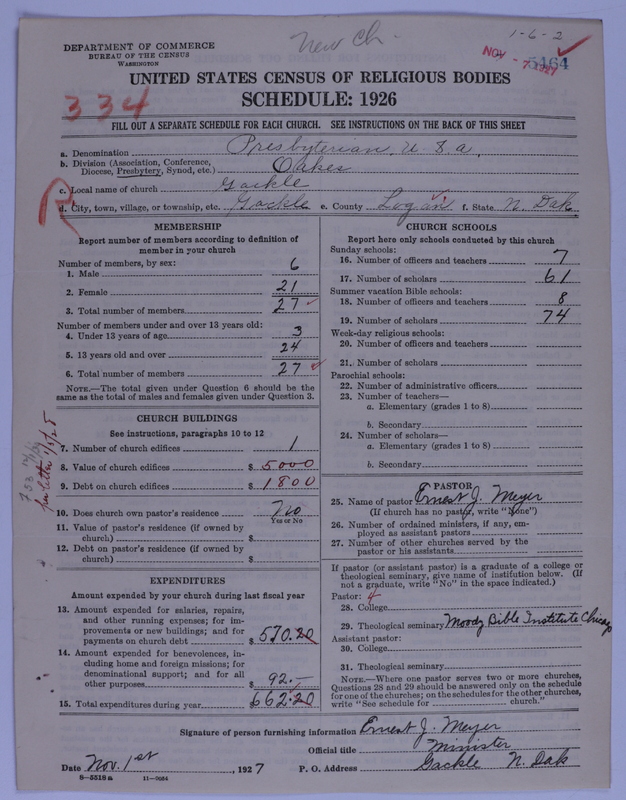 New Ch.
1-6-2
DEPARTMENT OF COMMERCE
BUREAU OF THE CENSUS
WASHINGTON
NOV - 7 1927
5464
UNITED STATES CENSUS OF RELIGIOUS BODIES
334
SCHEDULE: 1926
FILL OUT A SEPARATE SCHEDULE FOR EACH CHURCH. SEE INSTRUCTIONS ON THE BACK OF THIS SHEET
a. Denomination Presbyterian U. S. a.
b. Division (Association, Conference, Diocese, Presbytery, Synod, etc.) Oakes
c. Local name of church Gackle
d. City, town, village, or township, etc. Gackle e. County Logan f. State N. Dak
MEMBERSHIP
Report number of members according to definition of
member in your church
Number of members, by sex:
1. Male 6
2. Female 21
3. Total number of members 27
Number of members under and over 13 years old:
4. Under 13 years of age 3
5. 13 years old and over 24
6. Total number of members 27
NOTE.—The total given under Question 6 should be
same as the total of males and females given under Question 3.
CHURCH BUILDINGS
See instructions, paragraphs 10 to 12
7. Number of church edifices 1
8. Value of church edifices $ 5000
9. Debt on church edifices $ 1800
10. Does church own pastor's residence? No
Yes or No
11. Value of pastor's residence (if owned by
church) $
12. Debt on pastor's residence (if owned by
church) $
EXPENDITURES
Amount expended by your church during last fiscal year
13. Amount expended for salaries, repairs,
and other running expenses; for im-
provements or new buildings; and for
payments on church debt $ 570.20
14. Amount expended for benevolences, in-
cluding home and foreign missions; for
denominational support; and for all
other purposes $ 92.—
15. Total expenditures during year $662.20
CHURCH SCHOOLS
Report here only schools conducted by this church
Sunday schools:
16. Number of officers and teachers 7
17. Number of scholars 61
Summer vacation Bible schools:
18. Number of officers and teachers 8
19. Number of scholars 74
Week-day religious schools:
20. Number of officers and teachers
21. Number of scholars
Parochial schools:
22. Number of administrative officers
23. Number of teachers—
a. Elementary (grades 1 to 8)
b. Secondary
24. Number of scholars—
a. Elementary (grades 1 to 8)
b. Secondary
PASTOR
25. Name of pastor Ernest J. Meyer
(If church has no pastor, write "None")
26. Number of ordained ministers, if any, em-
ployed as assistant pastors
27. Number of other churches served by the
pastor or his assistants
If pastor (or assistant pastor) is a graduate of a college or
theological seminary, give name of institution below. (If
not a graduate, write "No" in the space indicated.)
Pastor: 4
28. College
29. Theological seminary Moody Bible Institute Chicago
Assistant pastor:
30. College
31. Theological seminary
NOTE.—Where one pastor serves two or more churches,
Questions 28 and 29 should be answered only on the schedule
for one of the churches; on the schedules for the other churches,
write "See schedule for church."
Signature of person furnishing information Ernest J. Meyer
Official title Minister
Date Nov. 1st, 1927 P. O. Address Gackle N. Dak
8-5518a 11-9054